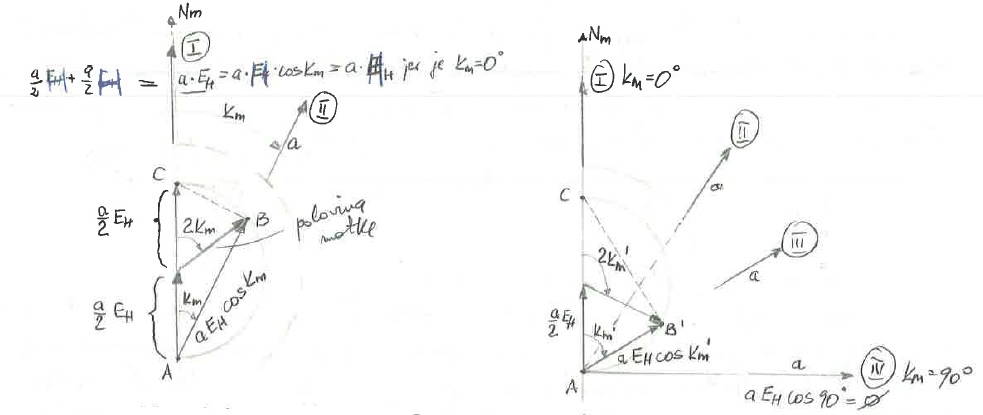 Nm
I
a/2 EH + a/2 EH = a·EH = a·EH·cosKm = a·EH jer je Km=0°
Km
II
a
C
a/2 EH
2Km
B
polovina
motke
a/2 EH
Km
a EH cosKm
A
Nm
I Km=0°
II
a
C
III
a
2Km'
a/2 EH
Km'
B'
a EH cosKm'
A
a
IV Km=90°
a EH cos90°=0